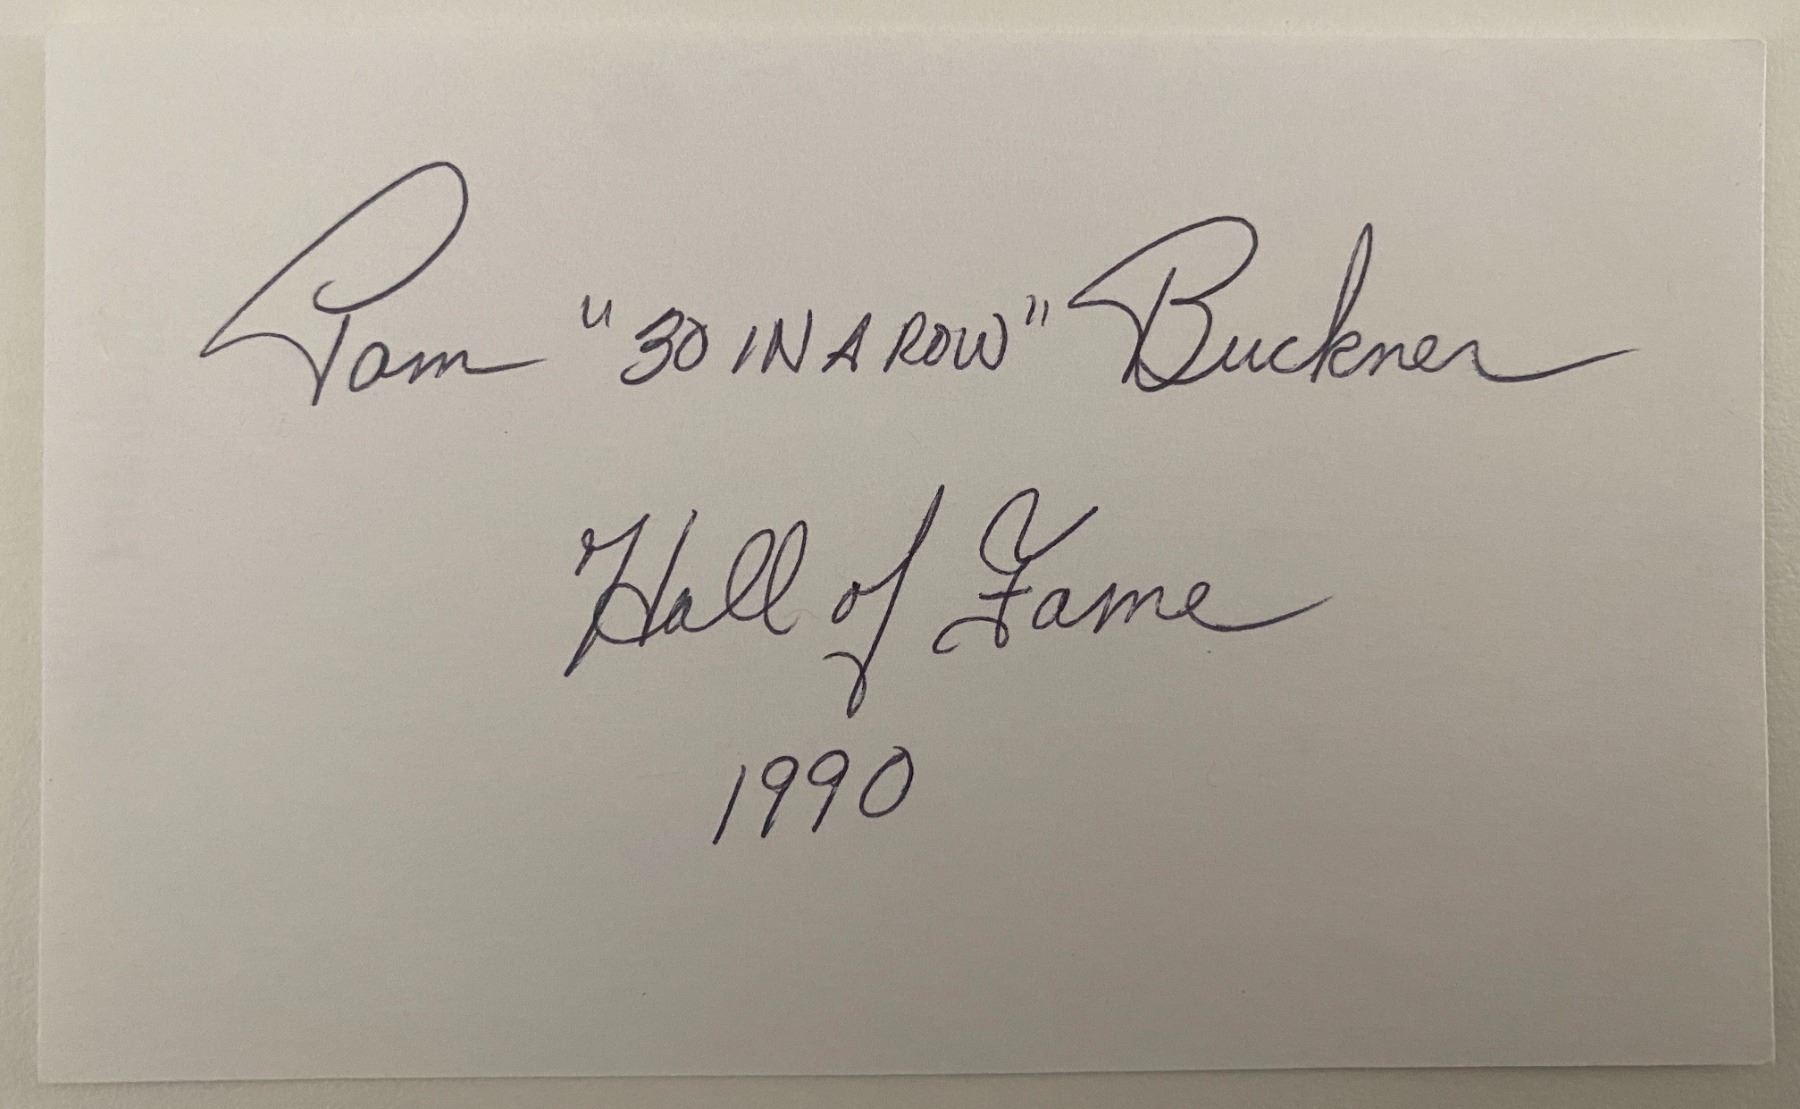 Pam "30 IN A ROW" Buckner
Hall of Fame
1990